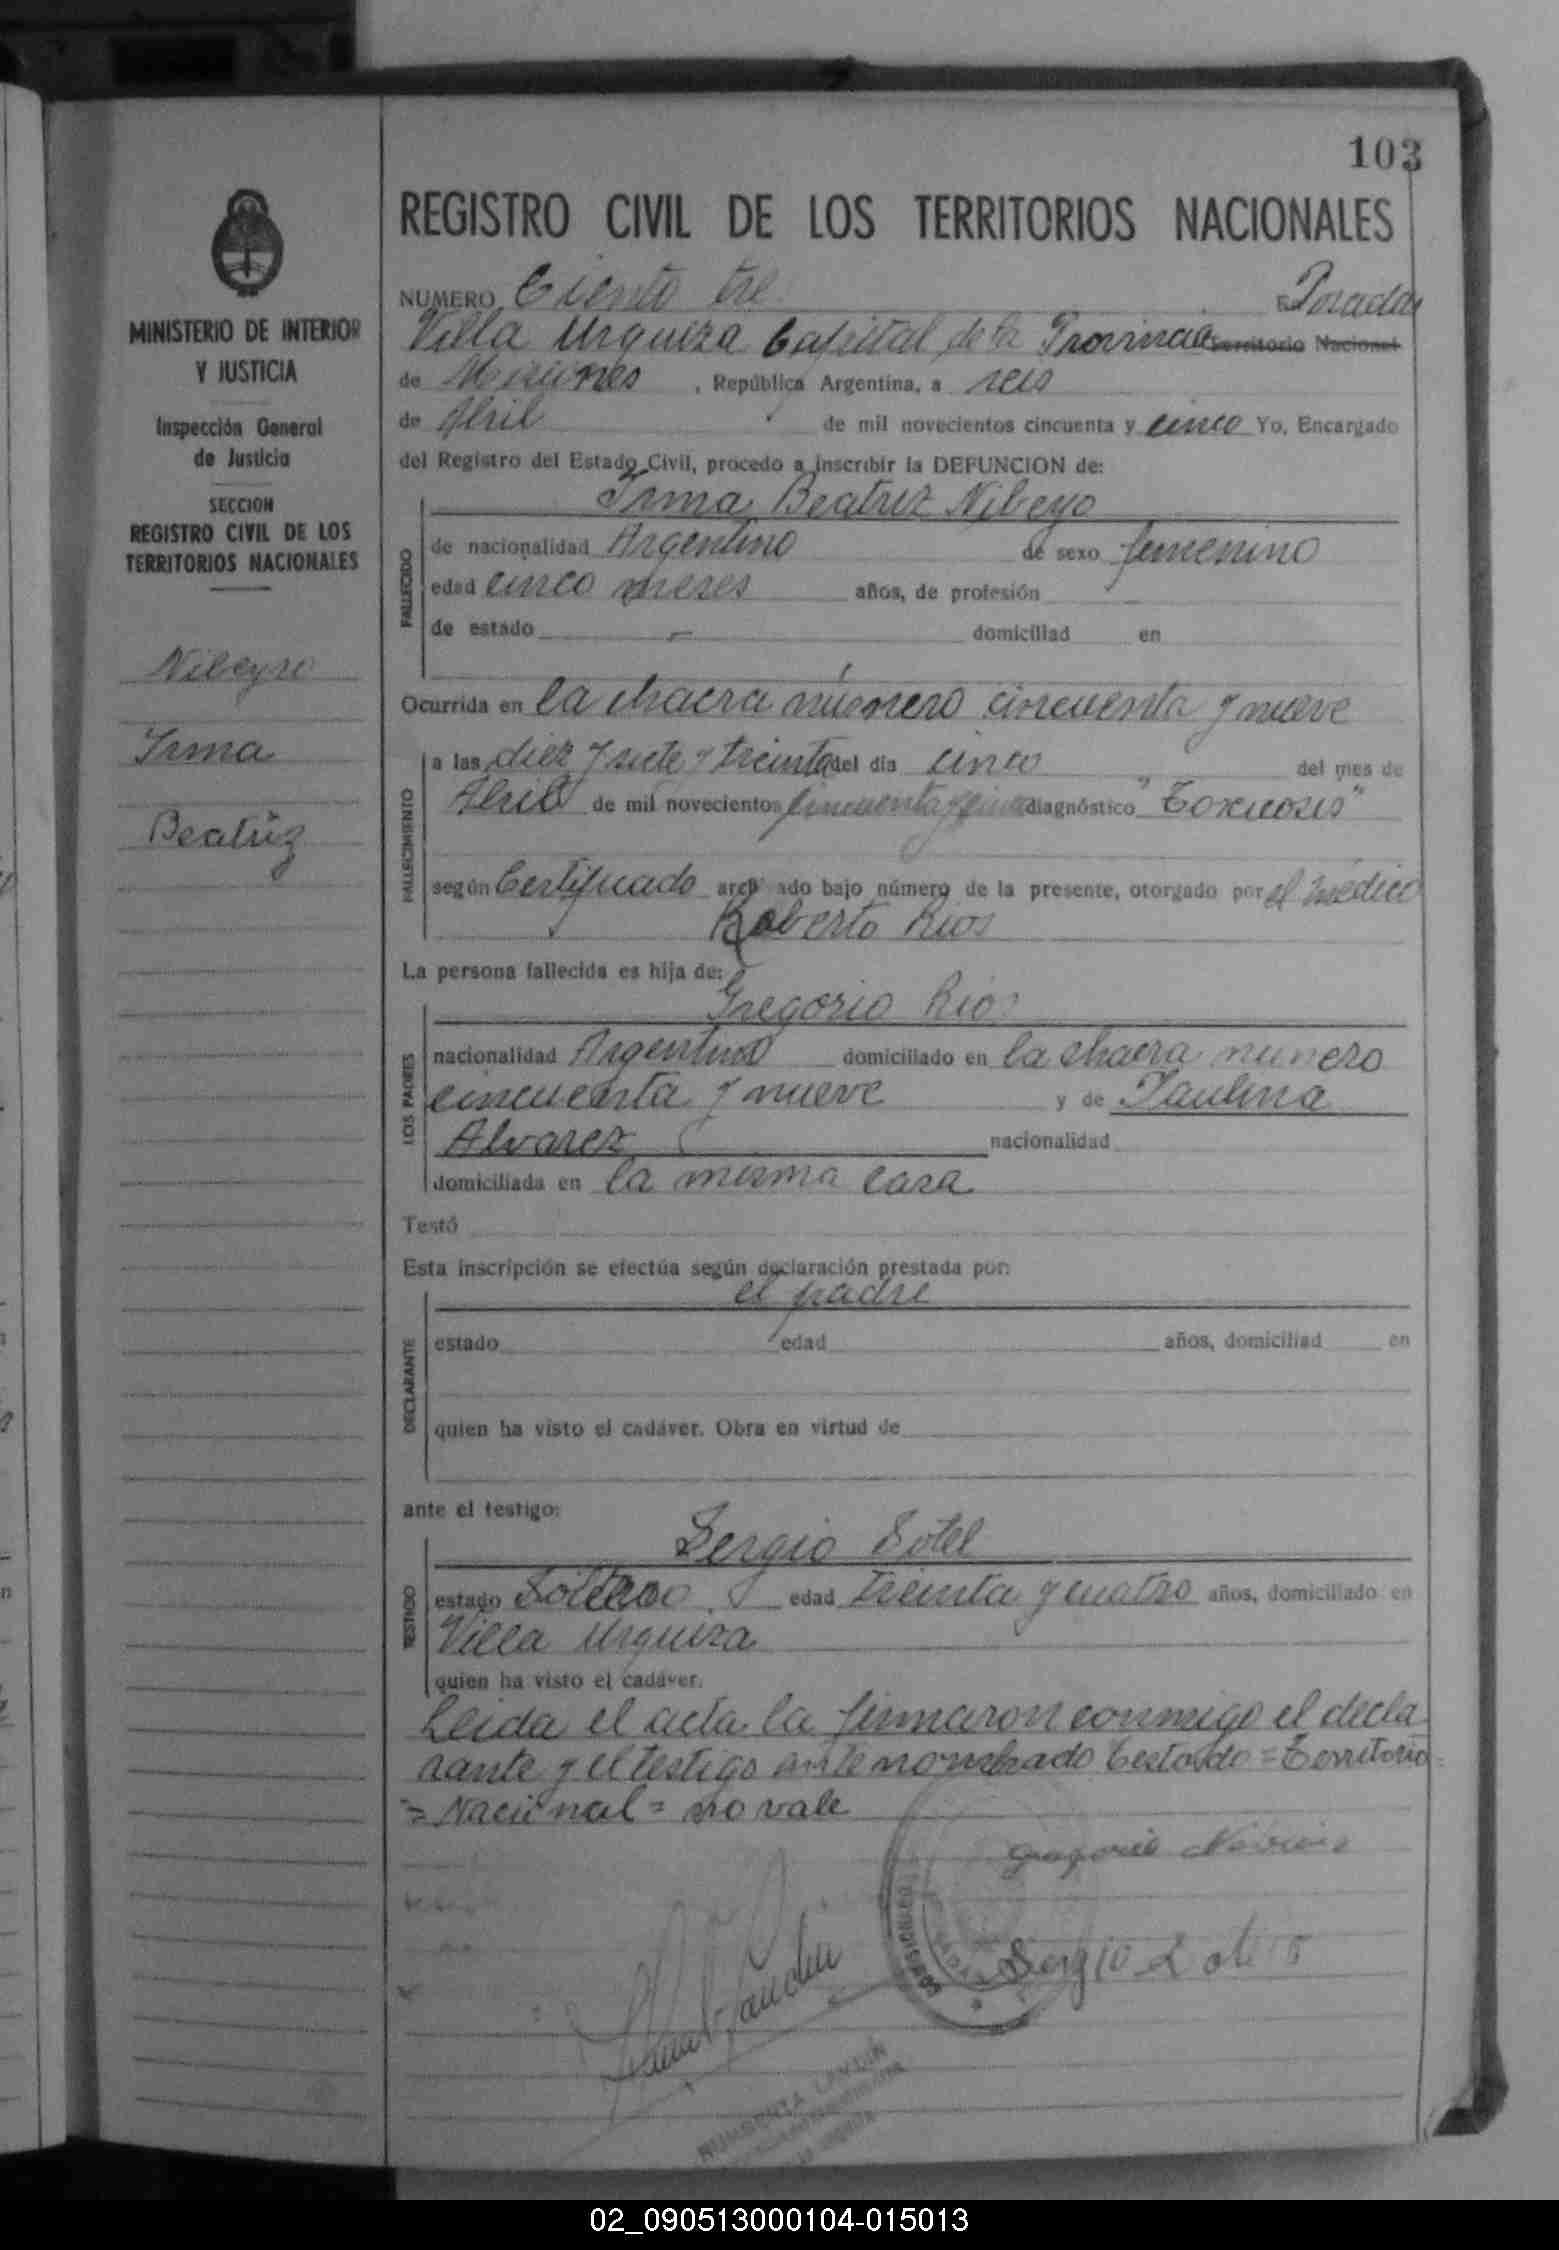 103
REGISTRO CIVIL DE LOS TERRITORIOS NACIONALES
MINISTERIO DE INTERIOR
Y JUSTICIA
Inspección General
de Justicia
SECCION
REGISTRO CIVIL DE LOS
TERRITORIOS NACIONALES
Nibeyro
Irma
Beatriz
NUMERO Ciento tre En Posadas
Villa Urquiza Capital de la Provincia Territorio Nacional
de Misiones, República Argentina, a seis
de Abril de mil novecientos cincuenta y cinco Yo, Encargado
del Registro del Estado Civil, procedo a inscribir la DEFUNCION de:
Irma Beatriz Nibeyo
FALLECIDO
de nacionalidad Argentino de sexo femenino
edad cinco meses años, de profesión
de estado - domiciliad en
Ocurrida en la chacra número cincuenta y nueve
FALLECIMIENTO
a las diez y siete y treinta del día cinco del mes de
Abril de mil novecientos cincuenta y cinco diagnóstico "Toxicosis"
según Certificado archivado bajo número de la presente, otorgado por el médico
Roberto Rios
La persona fallecida es hija de:
Gregorio Rios
LOS PADRES
nacionalidad Argentino domiciliado en la chacra numero
cincuenta y nueve y de Paulina
Alvarez nacionalidad
domiciliada en la misma casa
Testó
Esta inscripción se efectúa según declaración prestada por:
el padre
DECLARANTE
estado edad años, domiciliad en
quien ha visto el cadáver. Obra en virtud de
ante el testigo:
Sergio Sotel
TESTIGO
estado Soltero edad treinta y cuatro años, domiciliado en
Villa Urquiza
quien ha visto el cadáver.
Leida el acta la firmaron conmigo el decla
rante y el testigo ante nombrado Testado = Territorio
= Nacional = no vale
Gregorio
Sergio
02_090513000104-015013